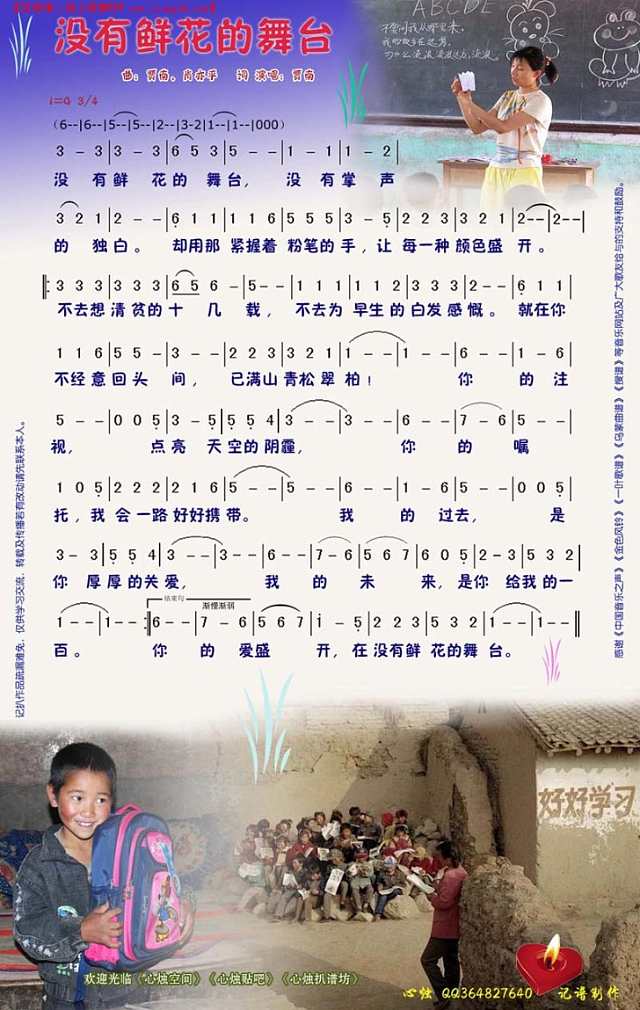 没有鲜花的舞台
词 演唱：贾南
ABCDE
1=G 3/4
(6--|6--|5--|5--|2--|3-2|1--|1--|000)
3 - 3|3 - 3|6 5 3|5 - -|1 - 1|1 - 2|
没 有鲜 花的 舞台， 没 有掌 声
3 2 1|2 - -|6 1 1|1 1 6|5 5 5|3 - 5|2 2 3|3 2 1|2--|2--|
的 独白。 却用那 紧握着 粉笔的手，让 每一种 颜色盛 开。
3 3 3|3 3 3|6 5 6 -|5--|1 1 1|1 1 1|2 2 3|3 3 2|2--|6 1 1|
不去想清贫的十 几 载， 不去为 早生的白发感慨。 就在你
1 1 6|5 5 -|3 - -|2 2 3|3 2 1|1--|1--|6 - -|1 - -|1 - -|
不经意回头 间， 已满山青松翠 柏！ 你 的 注
5 - -|0 0 5|3 - 5|5 5 4|3 --|3 - -|6 - -|7 - 6|5 - -|
视， 点亮 天空的阴霾， 你 的 嘱
1 0 5|2 2 2|2 1 6|5 - -|5 - -|3 - -|6 - -|1 - -|5 - -|0 0 5|
托，我 会一路好好携 带。 我 的 过去， 是
3 - 3|5 5 4|3 - -|3 - -|6 - -|7 - 6|5 6 7|6 0 5|2 - 3|5 3 2|
你 厚厚的关爱， 我 的 未 来，是你 给我的一
结束句
渐慢渐弱
1 - -|1 - -:|6 - -|7 - 6|5 6 7|i - 5|2 2 2|2 - 3|1--|1--‖
百。 你 的 爱盛 开，在没有鲜 花的舞台。
记扒作品疏漏难免，仅供学习交流，转载及传播若有改动请先联系本人。
感谢《中国音乐之声》《金色风铃》《一叶歌谱》《乌蒙曲谱》《搜谱》等音乐网站及广大歌友给与的支持和鼓励。
好好学习
欢迎光临《心烛空间》《心烛贴吧》《心烛扒谱坊》
心烛 QQ364827640 记谱制作